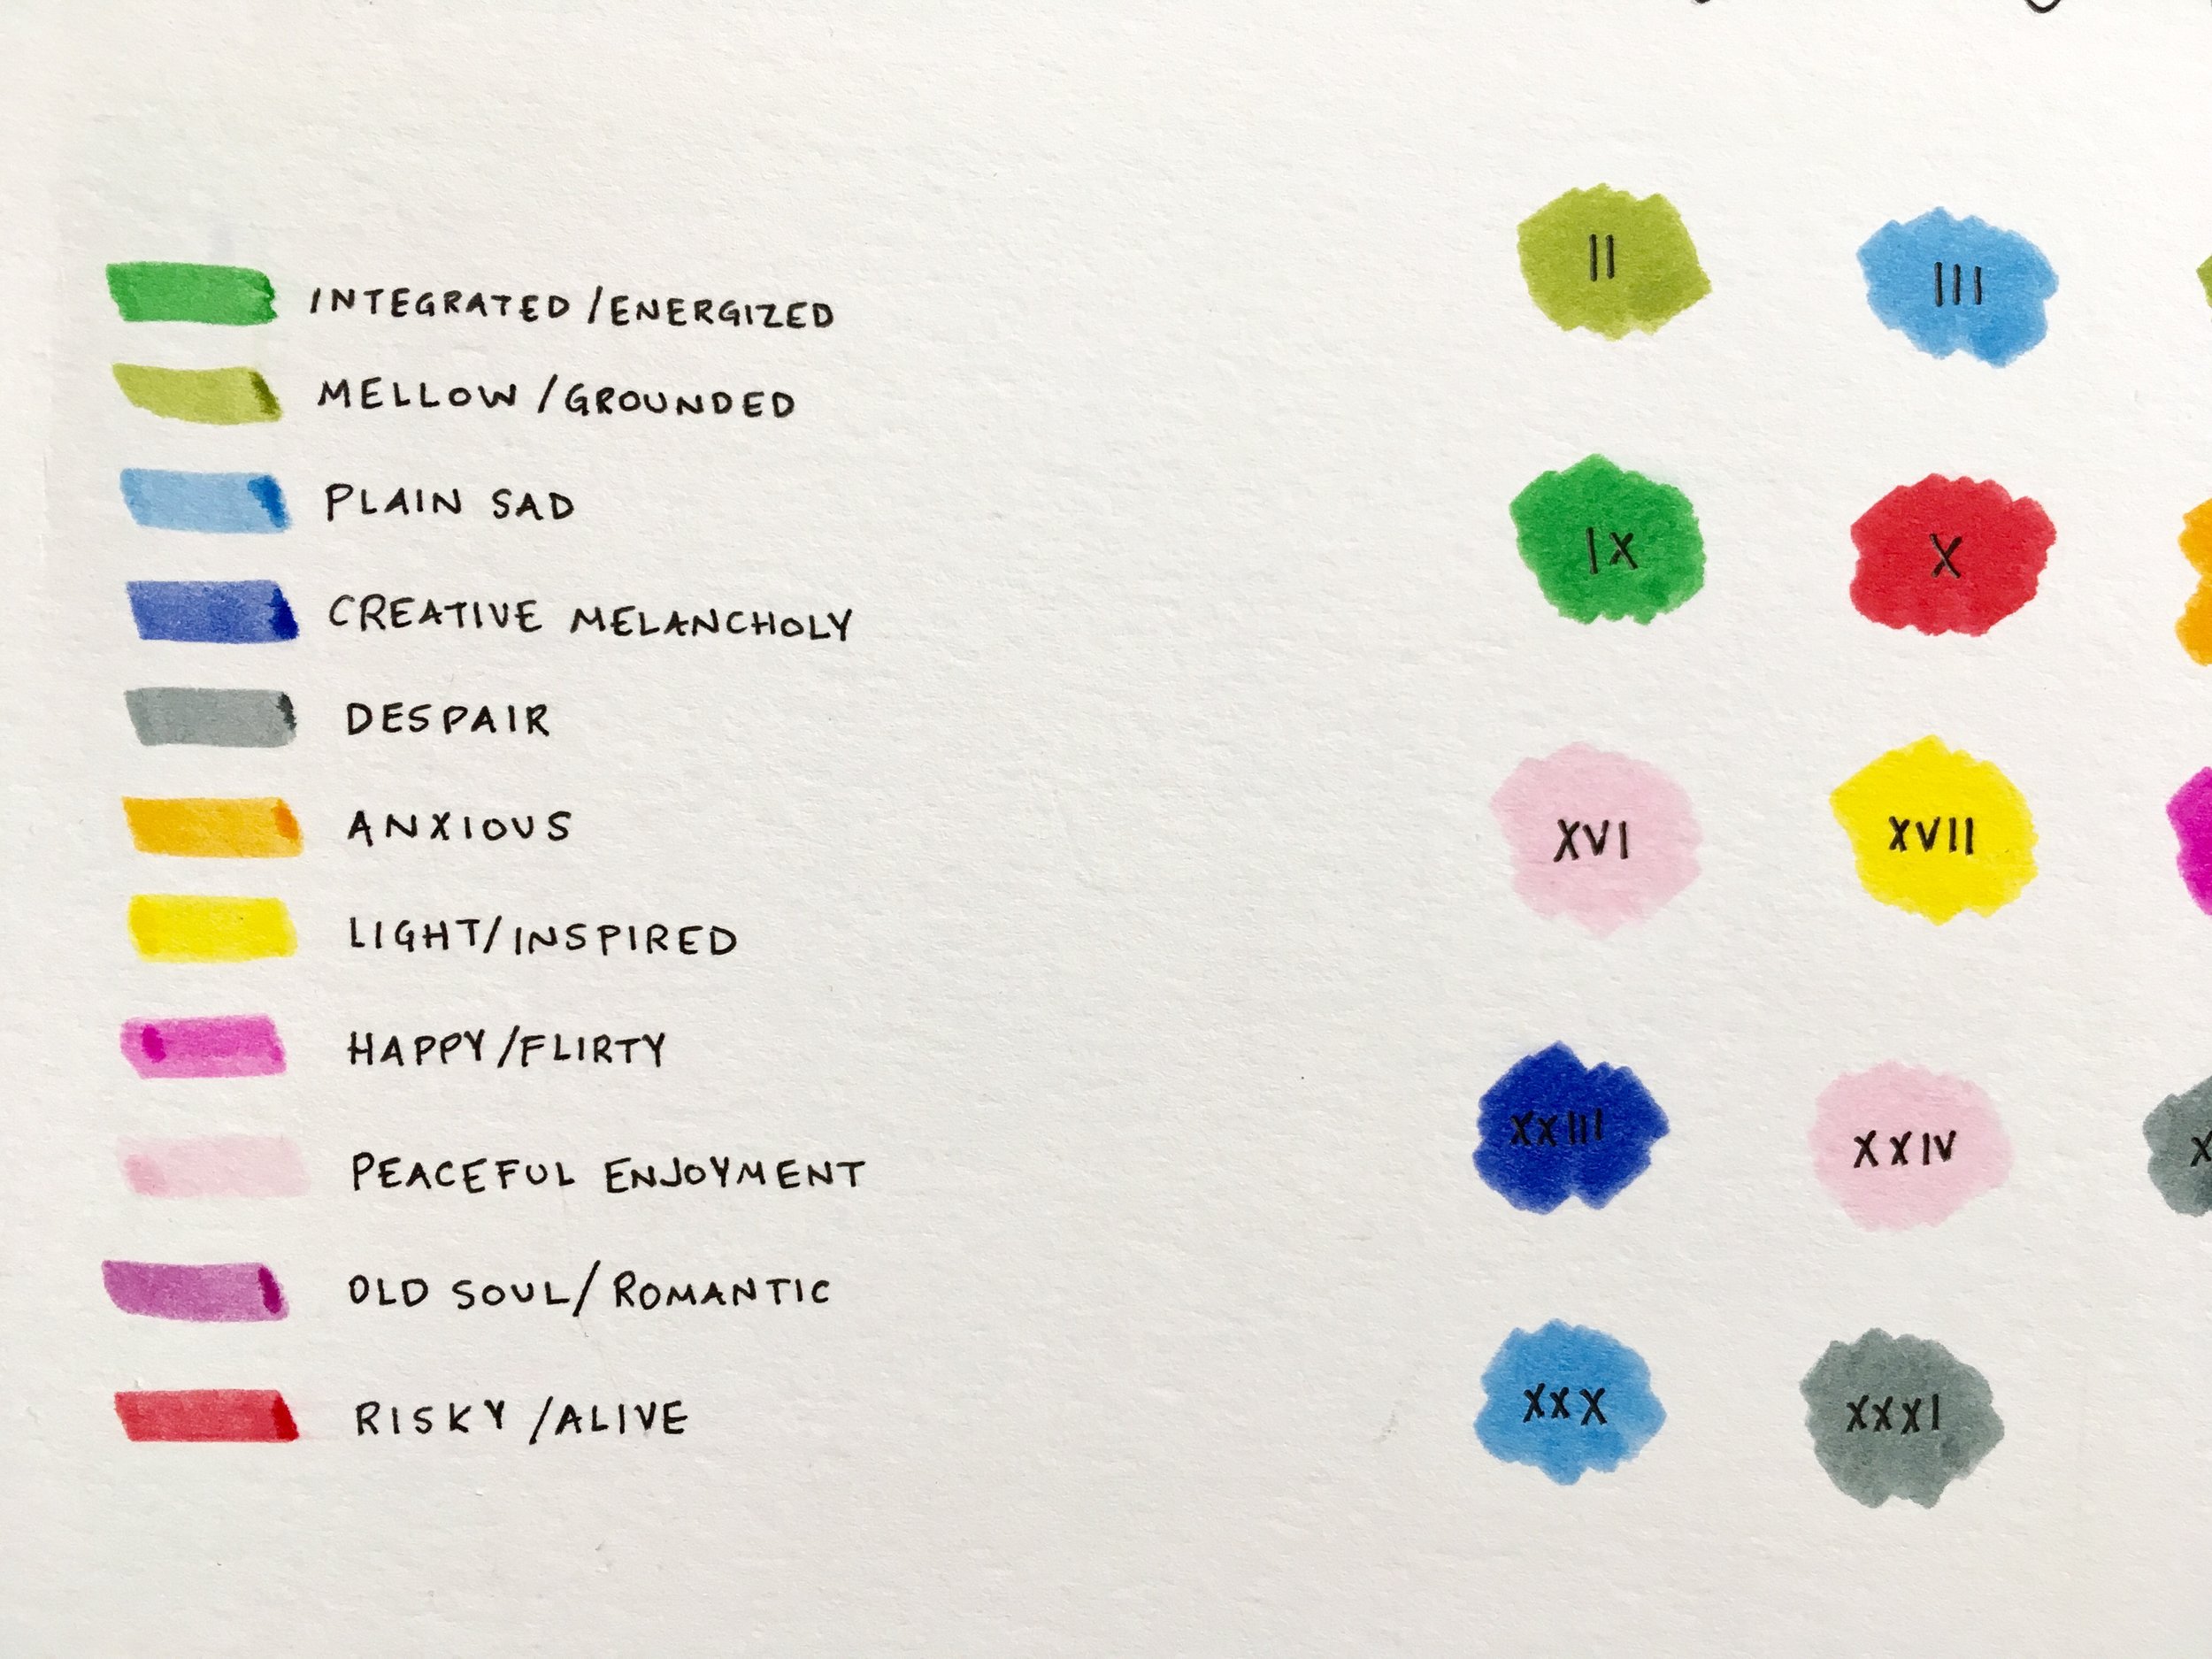 INTEGRATED/ENERGIZED
MELLOW/GROUNDED
PLAIN SAD
CREATIVE MELANCHOLY
DESPAIR
ANXIOUS
LIGHT/INSPIRED
HAPPY/FLIRTY
PEACEFUL ENJOYMENT
OLD SOUL/ROMANTIC
RISKY/ALIVE
II III
IX X
XVI XVII
XXIII XXIV
XXX XXXI